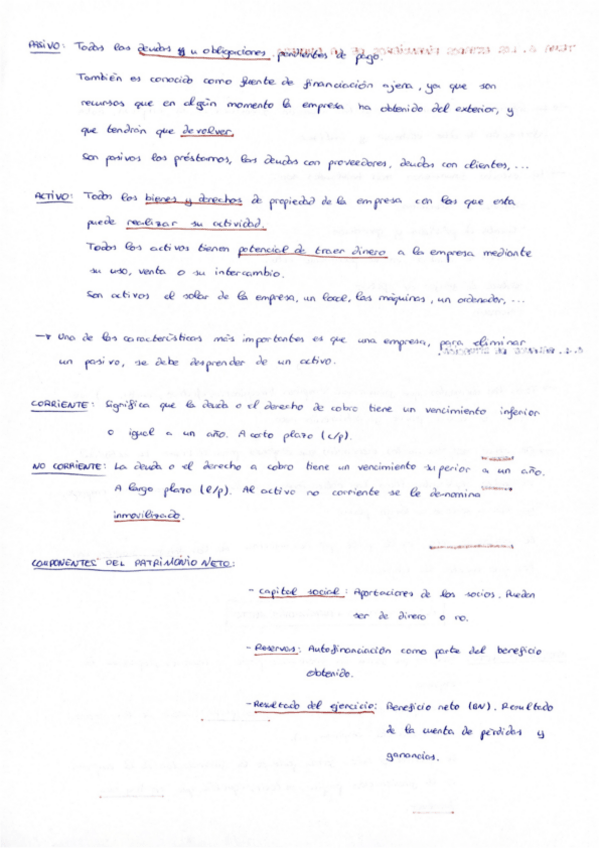 PASIVO: Todas las deudas y u obligaciones pendientes de pago.
También es conocido como fuente de financiación ajena, ya que son
recursos que en algún momento la empresa ha obtenido del exterior, y
que tendrán que devolver.
Son pasivos los préstamos, las deudas con proveedores, deudas con clientes, ...
ACTIVO: Todos los bienes y derechos de propiedad de la empresa con los que esta
puede realizar su actividad.
Todos los activos tienen potencial de traer dinero a la empresa mediante
su uso, venta o su intercambio.
Son activos el solar de la empresa, un local, las máquinas, un ordenador, ...
→ Una de las características más importantes es que una empresa, para eliminar
un pasivo, se debe desprender de un activo.
CORRIENTE: Significa que la deuda o el derecho de cobro tiene un vencimiento inferior
o igual a un año. A corto plazo (c/p).
NO CORRIENTE: La deuda o el derecho a cobro tiene un vencimiento superior a un año.
A largo plazo (l/p). Al activo no corriente se le denomina
inmovilizado.
COMPONENTES DEL PATRIMONIO NETO:
- Capital social: Aportaciones de los socios. Pueden
ser de dinero o no.
- Reservas: Autofinanciación como parte del beneficio
obtenido.
- Resultado del ejercicio: Beneficio neto (BN). Resultado
de la cuenta de pérdidas y
ganancias.